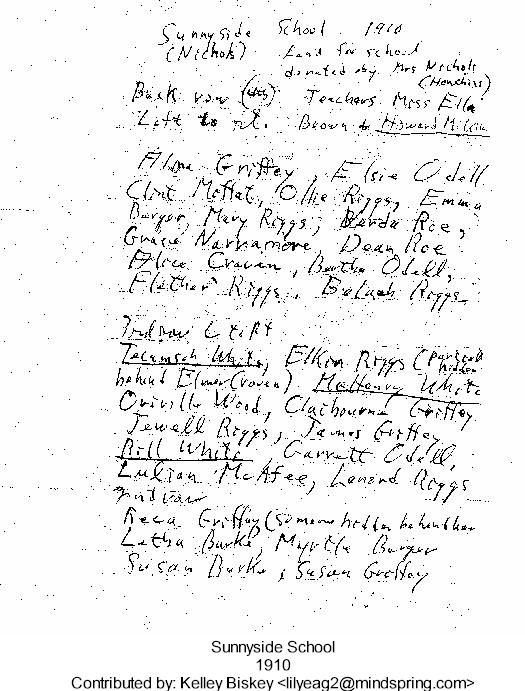 Sunnyside School 1910
(Nichols) Land for school
donated by Mrs Nichols
(Henchins)
Back row (4th) Teachers Miss Ella
Left to rt. Brown & Howard
Alma Griffey, Elsie Odell
Clint Moffat, Ollie Riggs, Emma
Barger, Mary Riggs, Verda Roe,
Gracie Narramore, Dean Roe
Alice Craven, Bertha Odell,
Flether Riggs, Beluah Riggs
3rd row L to Rt
Tecumseh White, Elkin Riggs (
hidden
behind Elmer Craven) McHenry White
Orirille Wood, Claibourne Griffey
Jewell Riggs, James Griffey
Bill White, Garrett Odell,
Lulian McAfee, Lenord Riggs
2nd row
Reca Griffey (Someone hidden behind her
Letha Burke, Myrtle Barger
Susan Burke, Susan Griffey
Sunnyside School
1910
Contributed by: Kelley Biskey <lilyeag2@mindspring.com>